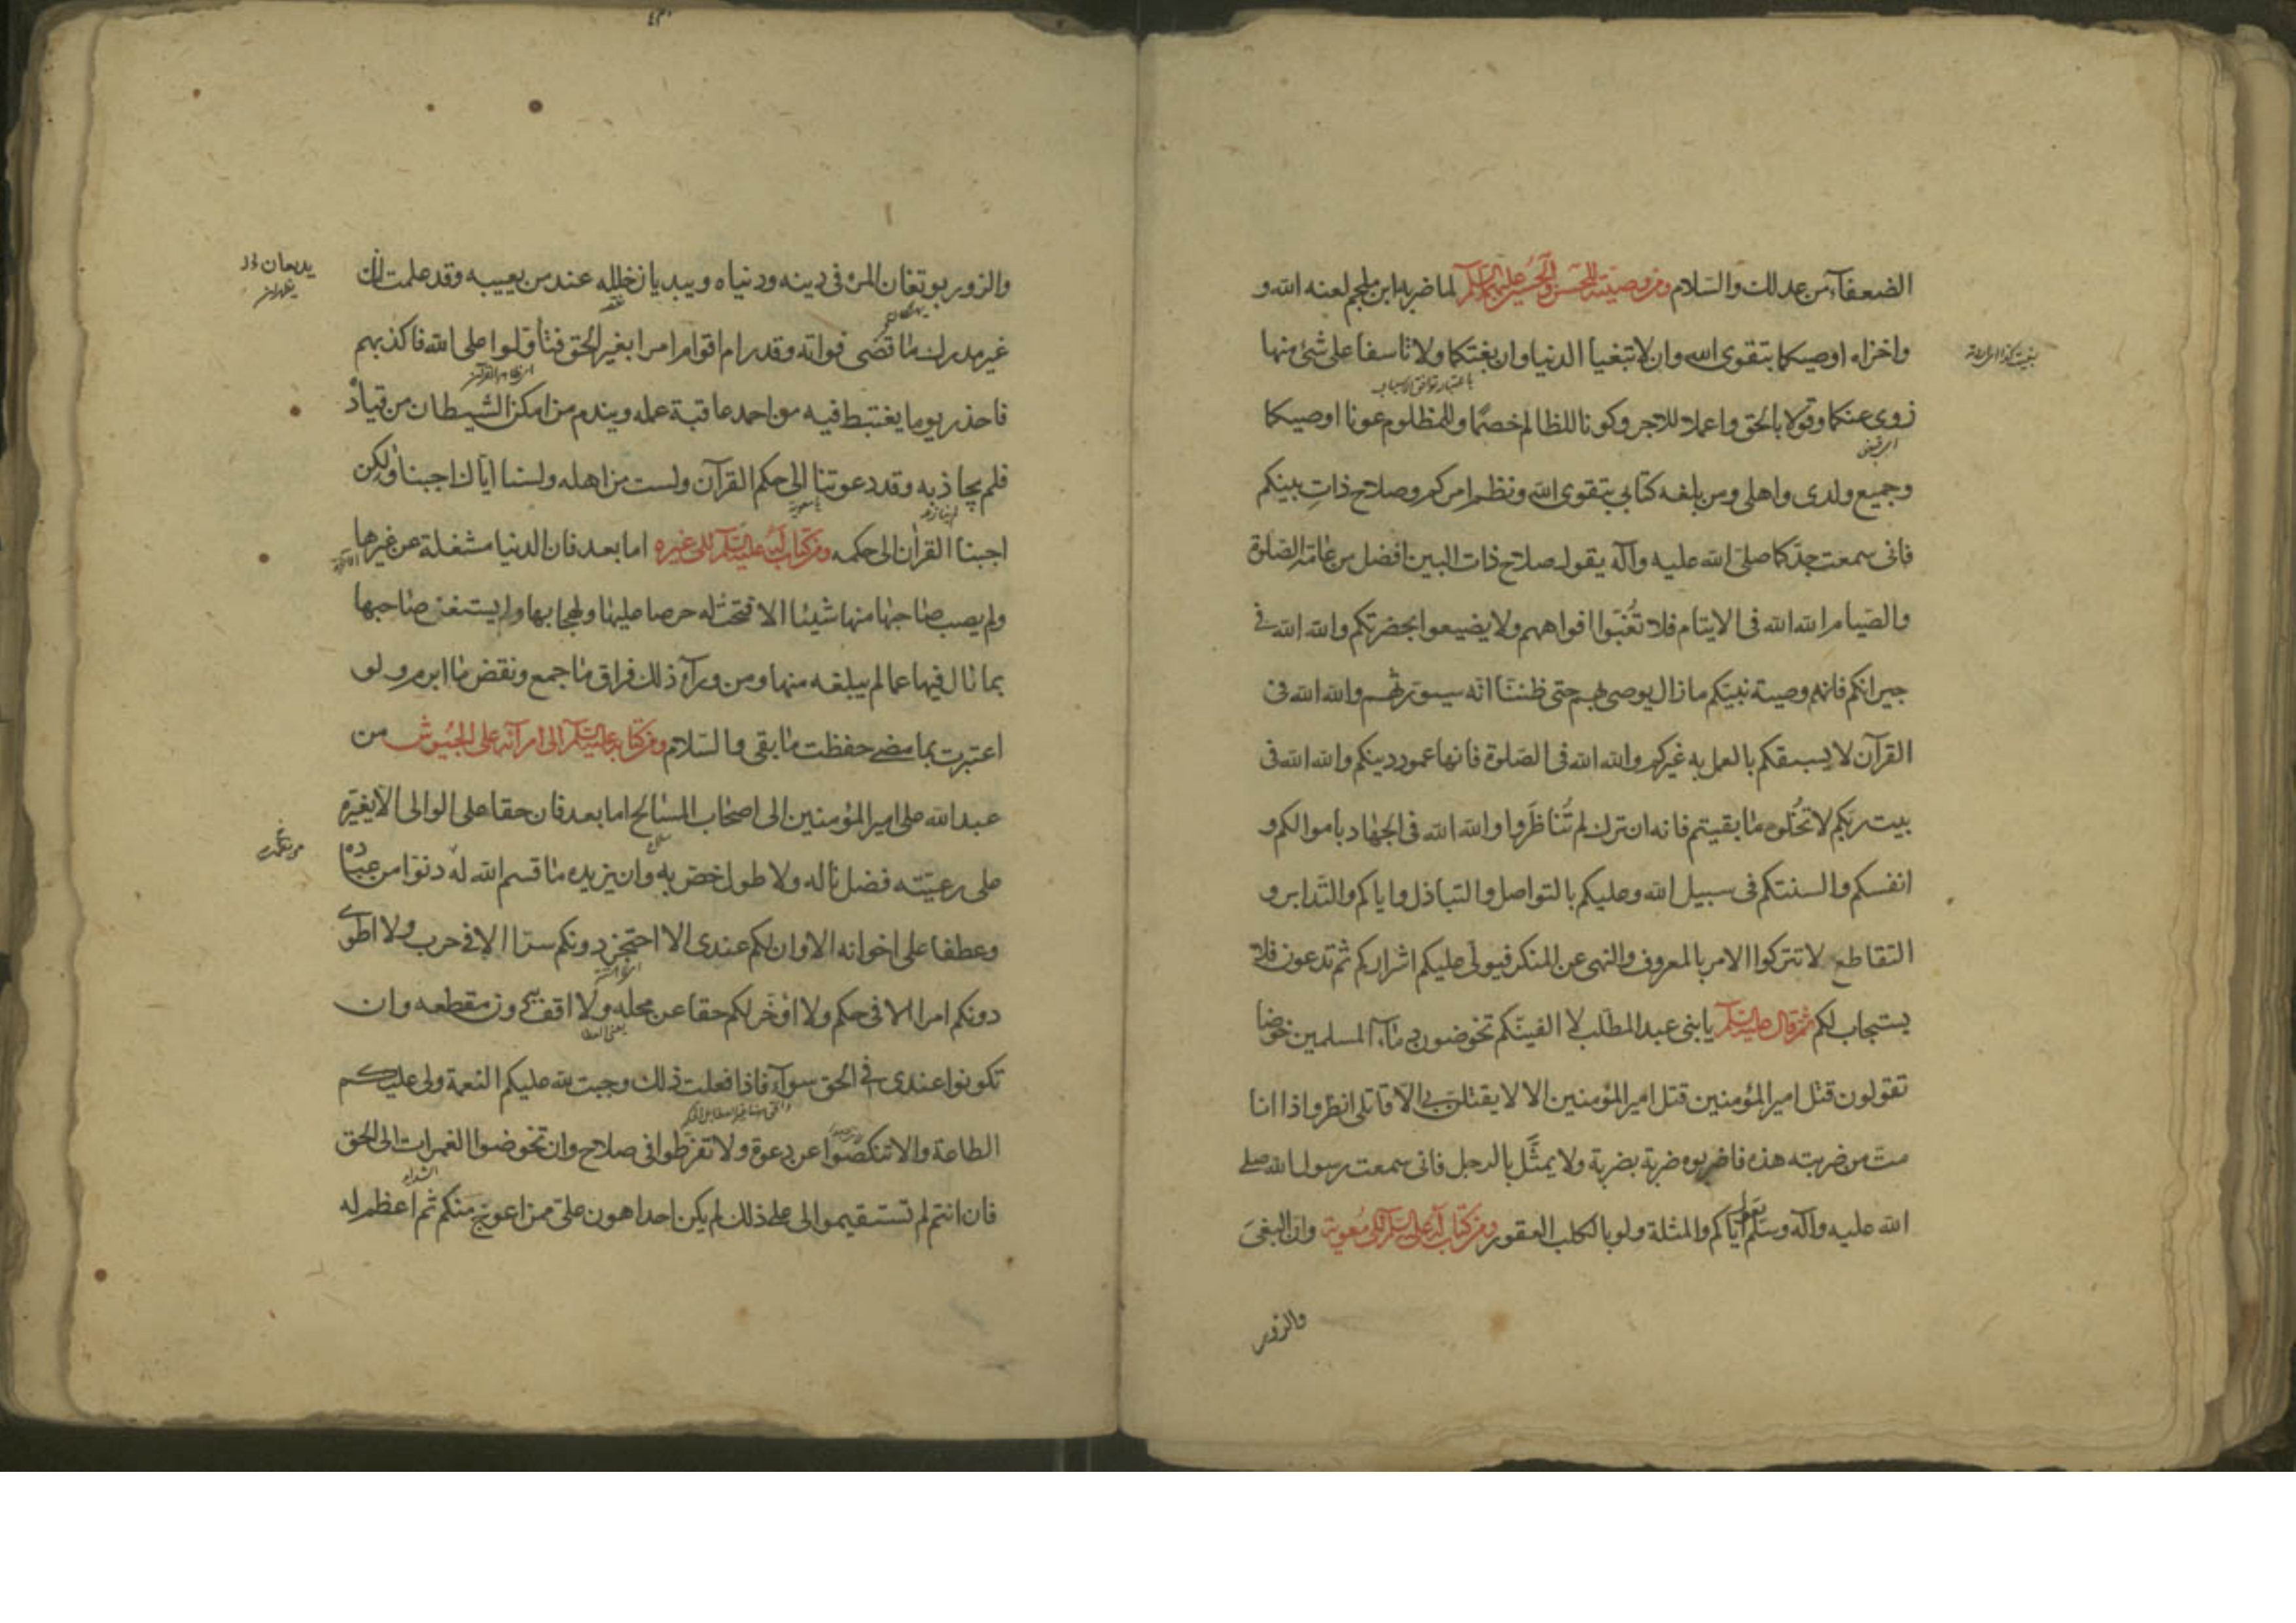 الضعفآء من عدلك والسّلام ومن وصيّته للحسن والحسين عليهما السّلام لما ضربه ابن ملجم لعنه الله و
واخزاه اوصيكما بتقوى الله وان لا تبغيا الدنيا وان بغتكما ولا تاسفا على شئ منها
زوى عنكما وقولا بالحق واعملا للاجر وكونا للظالم خصمًا وللمظلوم عونا اوصيكما
وجميع ولدى واهلى ومن بلغه كتابى بتقوى الله ونظم امركم وصلاح ذاتِ بينكم
فانى سمعت جدّكما صلى الله عليه وآله يقول صلاح ذات البين افضل من عامّة الصّلوة
والصّيام الله الله فى الايتام فلا تُغبّوا افواههم ولا يضيعوا بحضرتكم والله الله فى
جيرانكم فانهم وصية نبيّكم ما زال يوصى بهم حتى ظننّا انّه سيورّثهم والله الله فى
القرآن لا يسبقكم بالعمل به غيركم والله الله فى الصّلوة فانها عمود دينكم والله الله فى
بيت ربّكم لا تخلوه ما بقيتم فانه ان ترك لم تُناظَروا والله الله فى الجهاد باموالكم و
انفسكم والسنتكم فى سبيل الله وعليكم بالتواصل والتباذل واياكم والتّدابر و
التقاطع لا تتركوا الامر بالمعروف والنهى عن المنكر فيولّى عليكم اشراركم ثم تدعون فلا
يستجاب لكم ثم قال عليه السّلم يا بنى عبد المطّلب لا الفينّكم تخوضون دمآء المسلمين خوضا
تقولون قتل امير المؤمنين قتل امير المؤمنين الا لا يقتلنّ بى الّا قاتلى انظروا اذا انا
متّ من ضربته هذه فاضربوه ضربة بضربة ولا يمثّل بالرجل فانى سمعت رسول الله صلى
الله عليه وآله وسلّم يقول ايّاكم والمثلة ولو بالكلب العقور ومن كتاب له عليه السّلم الى معوية وان البغى
والزور
والزور يوتغان المرء فى دينه ودنياه ويبديان خلله عند من يعيبه وقد علمت انّك
غير مدرك ما قضى فواته وقد رام اقوام امرا بغير الحق فتأوّلوا على الله فاكذبهم
فاحذر يوما يغتبط فيه من احمد عاقبة عمله ويندم من امكن الشيطان من قياده
فلم يجاذبه وقد دعوتنا الى حكم القرآن ولست من اهله ولسنا ايّاك اجبنا ولكن
اجبنا القرآن الى حكمه ومن كتاب له عليه السّلم الى غيره اما بعد فان الدنيا مشغلة عن غيرها
ولم يصب صاحبها منها شيئا الا فتحت له حرصا عليها ولهجا بها ولم يستغن صاحبها
بما نال فيها عما لم يبلغه منها ومن ورآء ذلك فراق ما جمع ونقض ما ابرم ولو
اعتبرت بما مضى حفظت ما بقى والسّلام ومن كتاب له عليه السّلم الى امرآئه على الجيوش من
عبد الله على امير المؤمنين الى اصحاب المسالح اما بعد فان حقا على الوالى الّا يغيّره
على رعيّته فضل ناله ولا طول خصّ به وان يزيده ما قسم الله له دنوّا من عباده
وعطفا على اخوانه الا وان لكم عندى الا احتجز دونكم سرّا الا فى حرب ولا اطوى
دونكم امرا الا فى حكم ولا اؤخّر لكم حقا عن محله ولا اقف به دون مقطعه وان
تكونوا عندى فى الحق سوآء فاذا فعلت ذلك وجبت لله عليكم النعمة ولى عليكم
الطاعة والا تنكصوا عن دعوة ولا تفرّطوا فى صلاح وان تخوضوا الغمرات الى الحق
فان انتم لم تستقيموا لى على ذلك لم يكن احدا هون علىّ ممن اعوجّ منكم ثم اعظم له